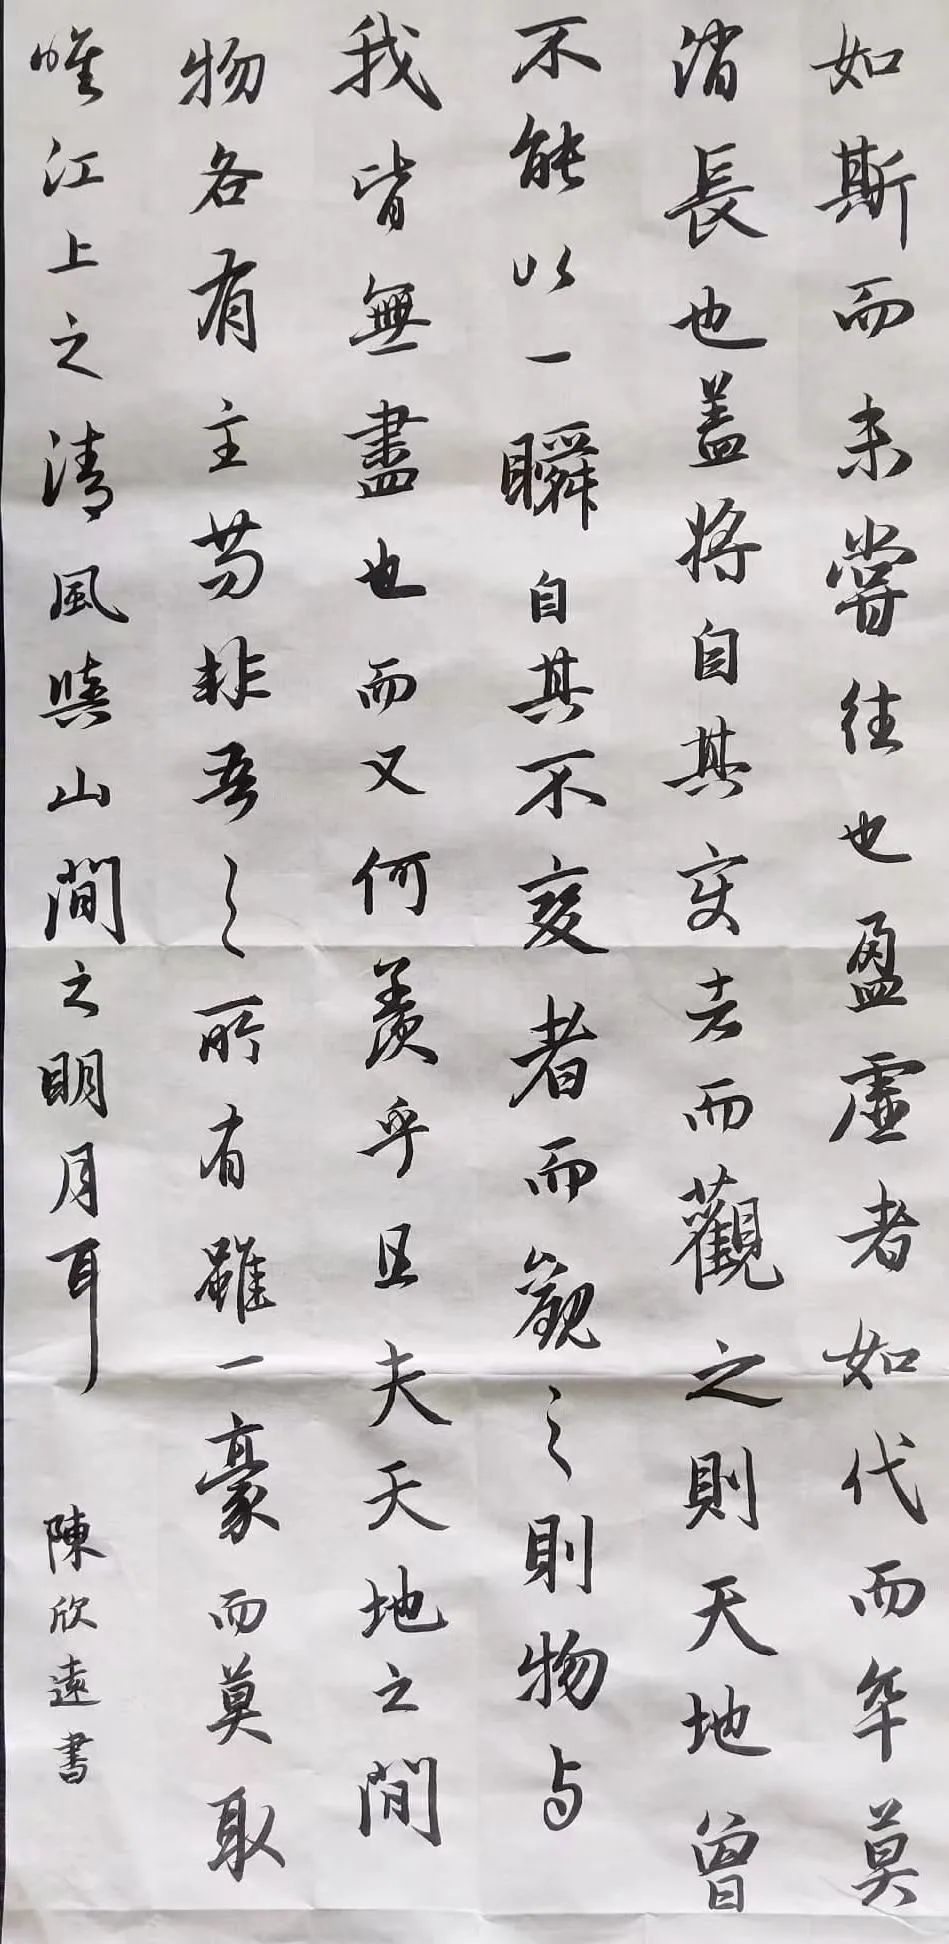 如斯而未嘗往也盈虛者如代而卒莫
消長也蓋將自其变者而觀之則天地曾
不能以一瞬自其不变者而觀之則物与
我皆無盡也而又何羨乎且夫天地之間
物各有主苟非吾之所有雖一豪而莫取
唯江上之清風與山間之明月耳
陳欣遠書